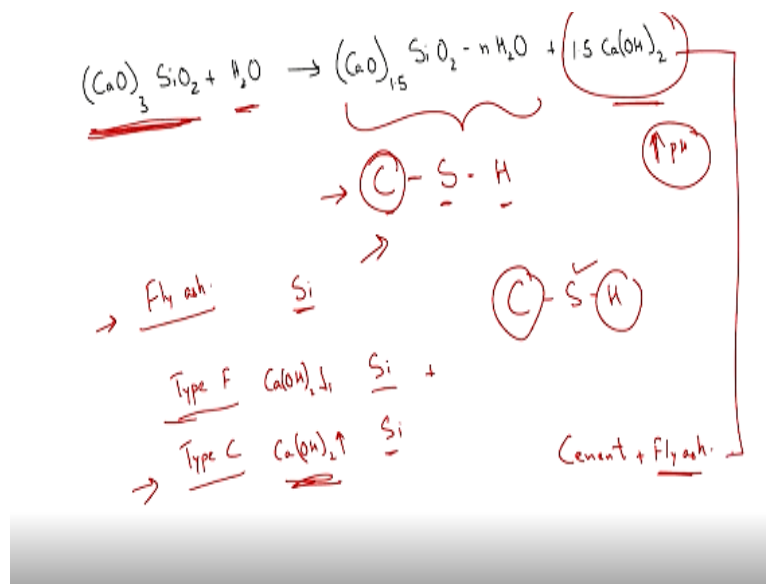 (CaO)₃ SiO₂ + H₂O → (CaO)₁.₅ SiO₂ - n H₂O + 1.5 Ca(OH)₂
↑ pH
→ C - S - H
→ Fly ash. Si
C - S - H
Type F Ca(OH)₂ ↓, Si +
→ Type C Ca(OH)₂ ↑ Si
Cement + Fly ash.